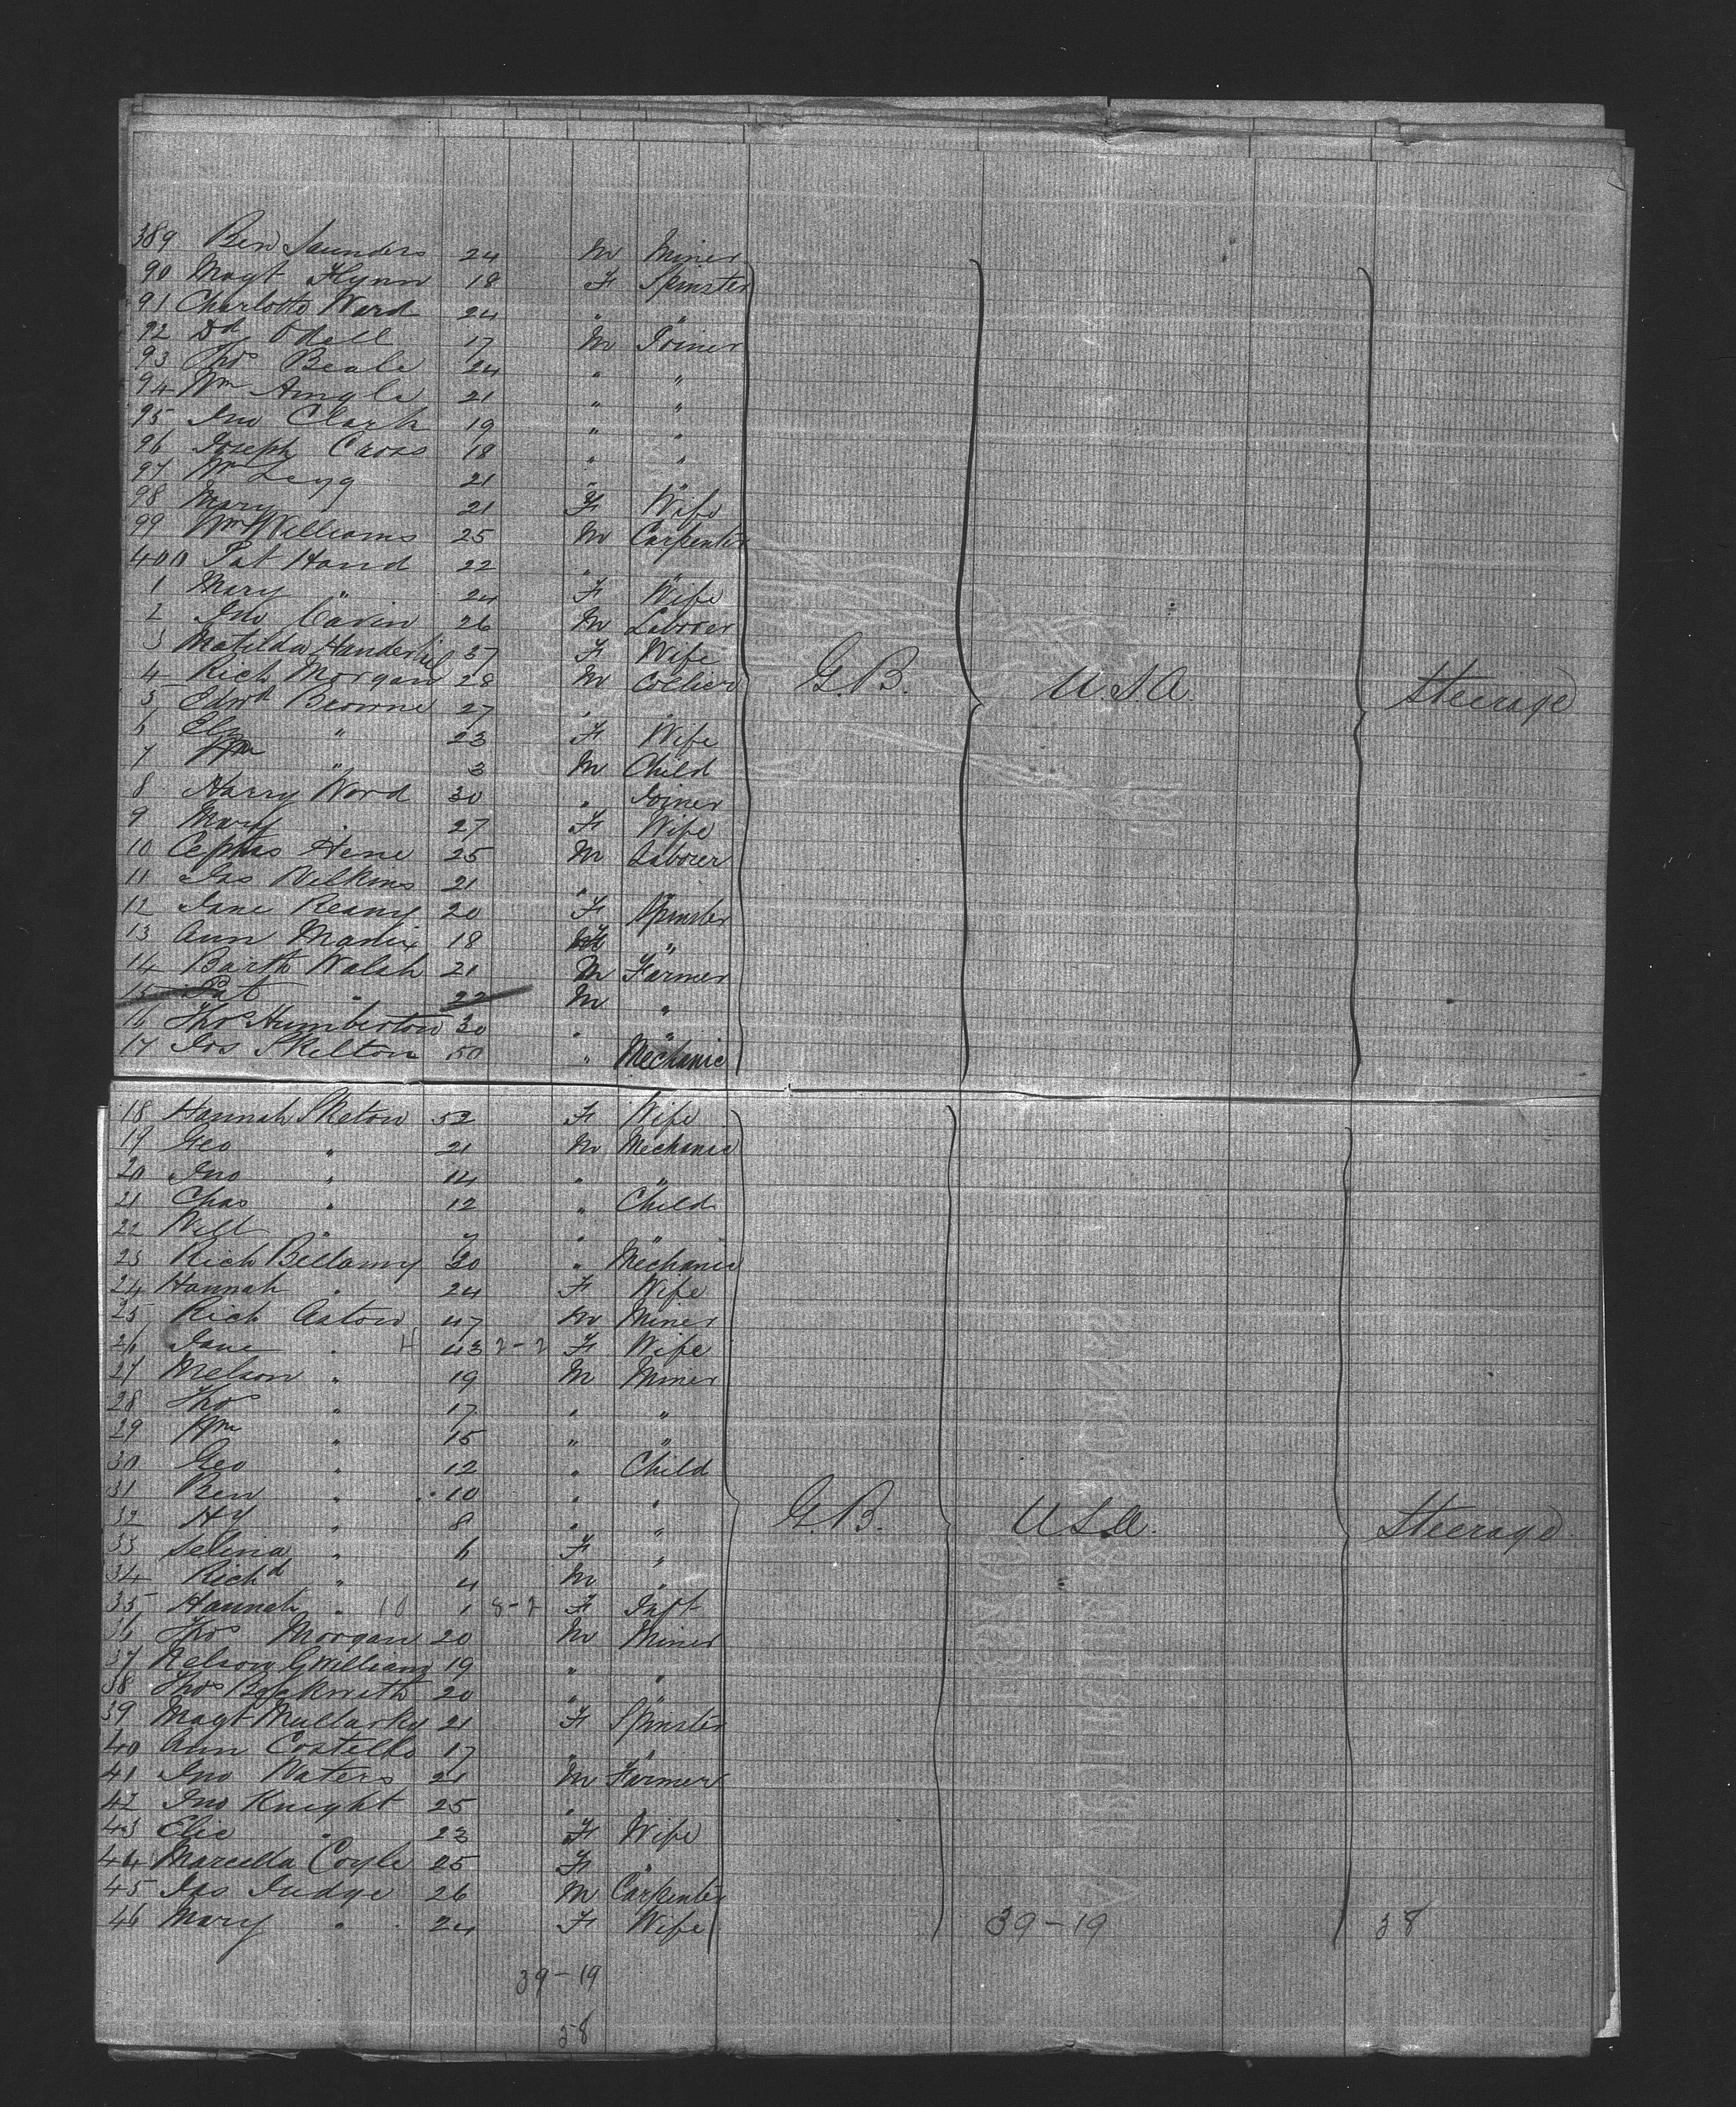 389 Ben Saunders 24 M Miner
90 Magt Flynn 18 F Spinster
91 Charlotte Ward 24 " "
92 Dd Odell 17 M Joiner
93 Thos Beale 24 " "
94 Wm Angle 21 " "
95 Jno Clark 19 " "
96 Joseph Cross 18 " "
97 Wm Legg 21 " "
98 Mary 21 F Wife
99 Wm Williams 25 M Carpenter
400 Pat Hand 22 " "
1 Mary " 24 F Wife
2 Jno Cavin 26 M Laborer
3 Matilda 37 F Wife
4 Rich Morgan 28 M Collier
5 Edwd Browne 27 " "
6 " 23 F Wife
7 Wm " 3 M Child
8 Harry Word 30 " Joiner
9 Mary " 27 F Wife
10 Cephas Hene 25 M Laborer
11 Jas Wilkins 21 " "
12 Jane Reany 20 F Spinster
13 Ann Manix 18 F "
14 Barth Walsh 21 M Farmer
15 Pat " 22 M "
16 Thos Humberton 30 " "
17 Jos Skelton 50 " Mechanic
G.B. U.S.A. Steerage
18 Hannah Sketon 52 F Wife
19 Geo " 21 M Mechanic
20 Jno " 14 " "
21 Chas " 12 " Child
22 Will " 7 " "
23 Rich Bellamy 30 " Mechanic
24 Hannah " 24 F Wife
25 Rich Aston 47 M Miner
26 Jane " 43 2-2 F Wife
27 Melson " 19 M Miner
28 Thos " 17 " "
29 Wm " 15 " "
30 Geo " 12 " Child
31 Ben " 10 " "
32 Hy " 8 " "
33 Selina " 6 F "
34 Richd " 4 M "
35 Hannah " 10 1 8-2 F Inft
36 Thos Morgan 20 M Miner
37 Nelson Gwilliam 19 " "
38 Thos Beckwith 20 " "
39 Magt Mullarky 21 F Spinster
40 Ann Costello 17 " "
41 Jno Waters 21 M Farmer
42 Jno Knight 25 " "
43 Elic " 23 F Wife
44 Marcella Coyle 25 F "
45 Jas Judge 26 M Carpenter
46 Mary " 24 F Wife
G.B. U.S.A. Steerage
39-19 38
39-19
58